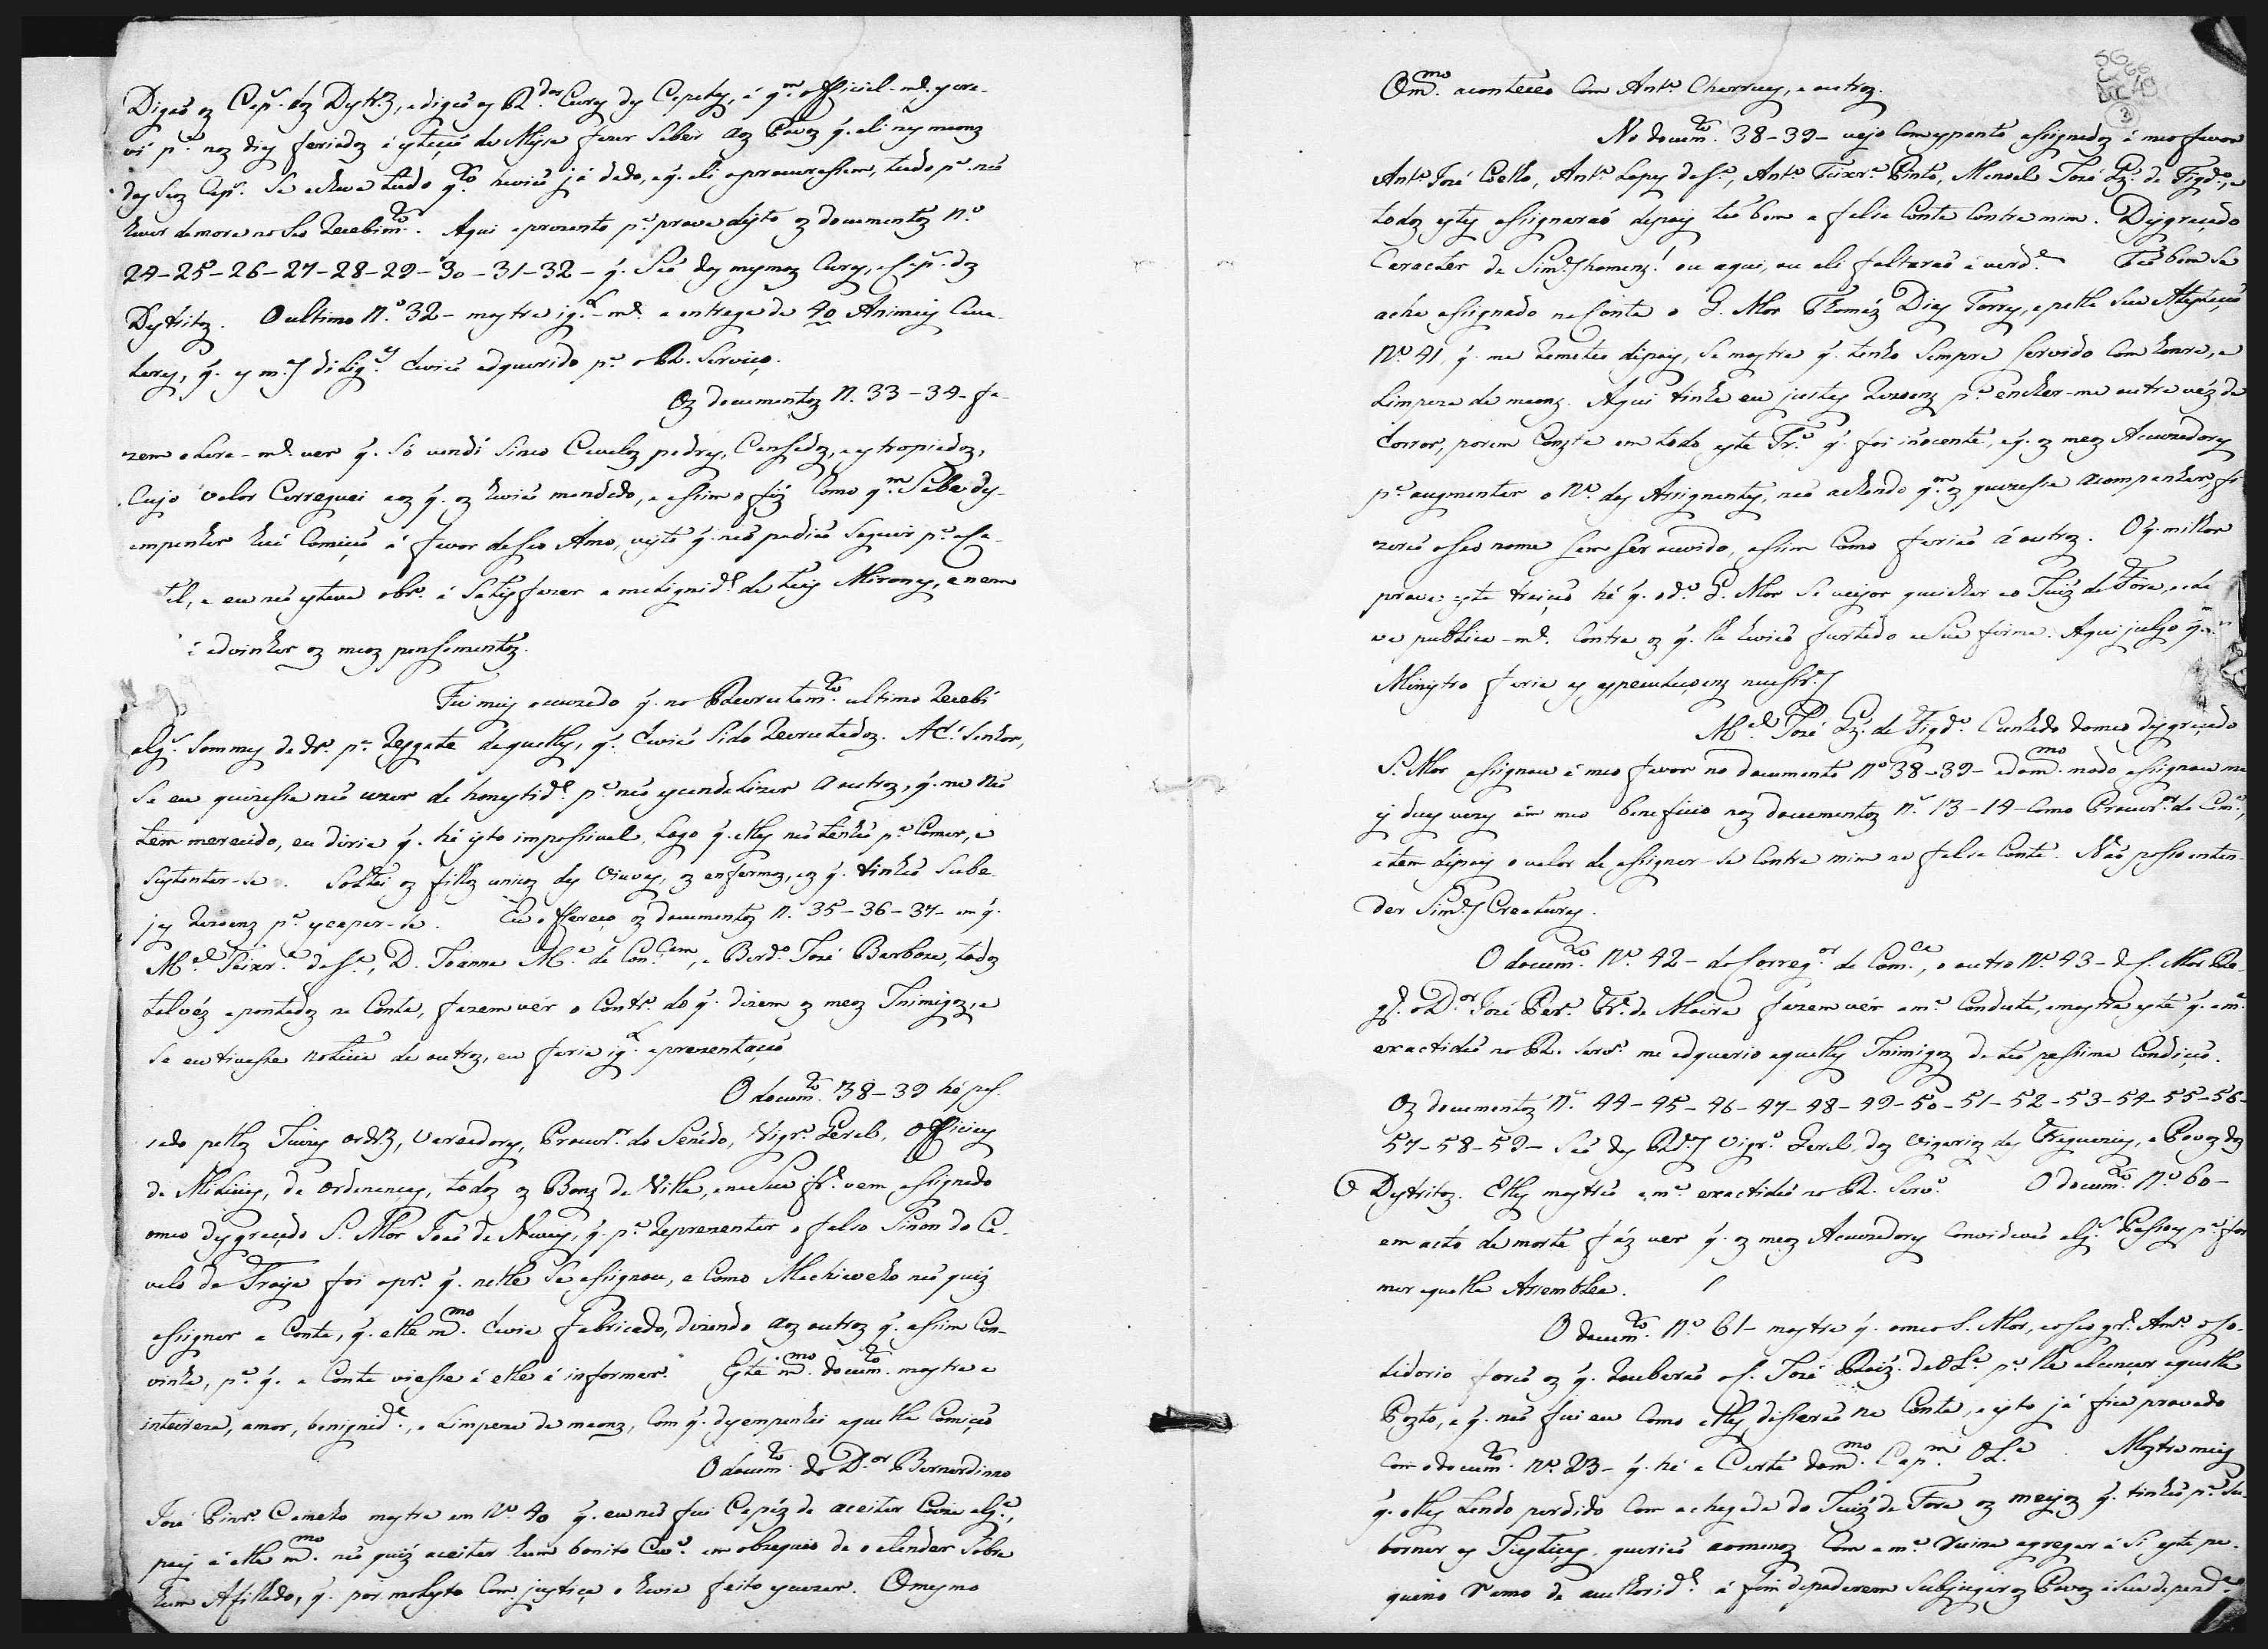 Digaõ os Cap.es dos Dystr.os, e digaõ os R.dos Curas das Capelas, á q.m officiel-m.e escre-
vi p.a nos dias feriados á estaçaõ da Missa fazer saber aos Povos q. ali nas maons
dos seos Cap.es se achava tudo q.to haviaõ já dado, e q. ali o procurassem, tudo p.a naõ
haver demora no seo recebim.to. Aqui aprezento p.a prova disto os documentos N.o
24-25-26-27-28-29-30-31-32- q. saõ dos mesmos Curas, e Cap.es dos
Dystritos. O ultimo N.o 32- mostra ig.l-m.e a entrega de 40 Animais Cava-
lares, q. as m.as dilig.as haviaõ adquerido p.a o R. Serviço.
Os documentos N. 33-34- fa-
zem clara-m.e ver q. só vendi sinco Cavalos pedres, Cansados, e estropiados,
Cujo valor Carreguei aos q. os haviaõ mandado, e assim o fiz como q.m sabe des-
empenhar huã Comiçaõ á favor de seo Amo, visto q. naõ podiaõ seguir p.a esa
tal, e eu naõ estava obr.o á satisfazer a malignid.e de tais Mirones, e nem
á advinhar os meos pensamentos.
Fui mais acuzado q. no Recrutam.to ultimo recebi
alg.as sommas de dr.o p.a resgate daquelles, q. haviaõ sido recrutados. Ah! Senhor,
se eu quizesse naõ uzar de honestid.e p.a naõ escandalizar a outros, q. me naõ
tem merecido, eu diria q. hé isto impossivel, logo q. elles naõ tenhaõ p.a Comer, e
sustentar-se. Soltei os filhos unicos das Viuvas, os enfermos, e os q. tinhaõ sube-
jas rezoens p.a escapar-se. Eu offereço os documentos N. 35-36-37- em q.
M.el Teixr.a da S.a, D. Joanna M.a da Con.cam, e Bord.o José Barboza, todos
talvéz apontados na Conta, fazem vér o Contr.o do q. dizem os meos Inimigos, e
se eu tivesse noticia de outros, eu faria ig.l aprezentaçaõ
O docum.to 38-39 hé pas-
sado pellos Juizes ordr.os, Vereadores, Procur.or do Senádo, Vigr.o Geral, Officiaes
de Milicias, de Ordenanças, todos os Bons da Villa, e na sua fr.e vem assignado
o meo desgraçado S. Mor Joaõ de Novais, q. p.a reprezentar o falso Sinon do Ca-
valo de Troya foi o pr.o q. nelle se assignou, e como Machiavelo naõ quiz
assignar a Conta, q. elle m.mo havia fabricado, dizendo aos outros q. assim con-
vinha, p.a q. a Conta viesse á elle á informar. Este m.mo docum.to mostra a
inteireza, amor, benignid.e, e limpeza de maons, com q. dezempenhei aquella Comiçaõ
O docum.to do D.or Bernardinno
José Pinr.o Camelo mostra em N.o 40 q. eu naõ fui Capáz de aceitar Coiza alg.a,
pois á elle m.mo naõ quiz aceitar hum bonito Cav.o em obzequio de o atender sobre
hum Afilhado, q. por molesto Com justiça o havia feito escuzar. O mesmo
O m.mo aconteceo com Ant.o Charruas, e outros.
No docum.to 38-39- vejo com espanto assignados á meo favor
Ant.o José Coelho, Ant.o Lopes da S.a, Ant.o Teixr.a Pinto, Manoel José Glz. de Figd.o, e
todos estes assignaraõ depois taõ bem a falsa Conta contra mim. Desgraçado
Caracter de Sim.es homens! ou aqui, ou ali faltaraõ á verd.e Taõ bem se
acha assignado na Conta o G. Mor Thomáz Dias Torres, e pella sua Atestaçaõ
N.o 41, q. me remeteo depois, se mostra q. tenho sempre servido com honra, e
limpeza de maons. Aqui tinha eu justas rezoens p.a encher-me outra véz de
horror, porem Consta em todo este Tr.o q. foi inocente, e q. os meos Acuzadores
p.a augmentar o N.o dos Assignantes, naõ achando q.m os quizesse acompanhar, fi-
zeraõ o seo nome sem ser ouvido, assim como fariaõ á outros. O q. milhor
prova esta traiçaõ hé q. o d.o G. Mor se veijo queichar ao Juiz de Fóra, e de
va publica-m.e contra os q. lhe haviaõ furtado a sua firma. Aqui julgo q.
Ministro faria as especulaçoens necessr.as
M.el José Glz. de Figd.o Cunhado do meo desgraçado
S. Mor assignou á meo favor no documento N.o 38-39- e do m.mo modo assignou ma
is duas vezes em meo beneficio nos documentos N.o 13-14- como Procur.or da Cam.a,
e tem depois o valor de assignar-se contra mim na falsa Conta. Naõ posso enten-
der Sim.es Creaturas.
O docum.to N.o 42- do Correg.or da Com.ca, o outro N.o 43- do S. Mor Re-
g.e o D.or José Per.a Fr.e de Moira fazem vér a m.a Conducta, e mostra este q. a m.a
exactidaõ no R. Serv.o me adquerio aquelles Inimigos de taõ pessima Condiçaõ.
Os documentos N. 44-45-46-47-48-49-50-51-52-53-54-55-56-
57-58-59- saõ dos Rd.os Vigr.o Geral, dos Vigarios das Freguezias, e Povos dos
Dystritos. Elles mostraõ a m.a exactidaõ no R. Serv.o O docum.to N.o 60-
em acto de morte fáz ver q. os meos Acuzadores Convidavaõ alg.as Pessoas p.a for
mar aquella Assemblea.
O docum.to N.o 61- mostra q. o meo S. Mor, e o seo gr.e Am.o o so-
lidorio foraõ os q. roubaraõ o C. José Roiz. da S.a p.a lhe alcançar aquelle
Posto, e q. naõ fui eu como elles disseraõ na Conta, e isto já fica provado
Com o docum.to N.o 23- q. hé a Carta do m.mo Cap.m S.a Mostra mais
q. elles tendo perdido com a chegada do Juiz de Fora os meijos q. tinhaõ p.a su-
bornar as Justiças, queriaõ aomenos com a m.a ruina agregar á si este pe-
queno ramo de authorid.e á fim de poderem subjugar os Povos á sua depend.a